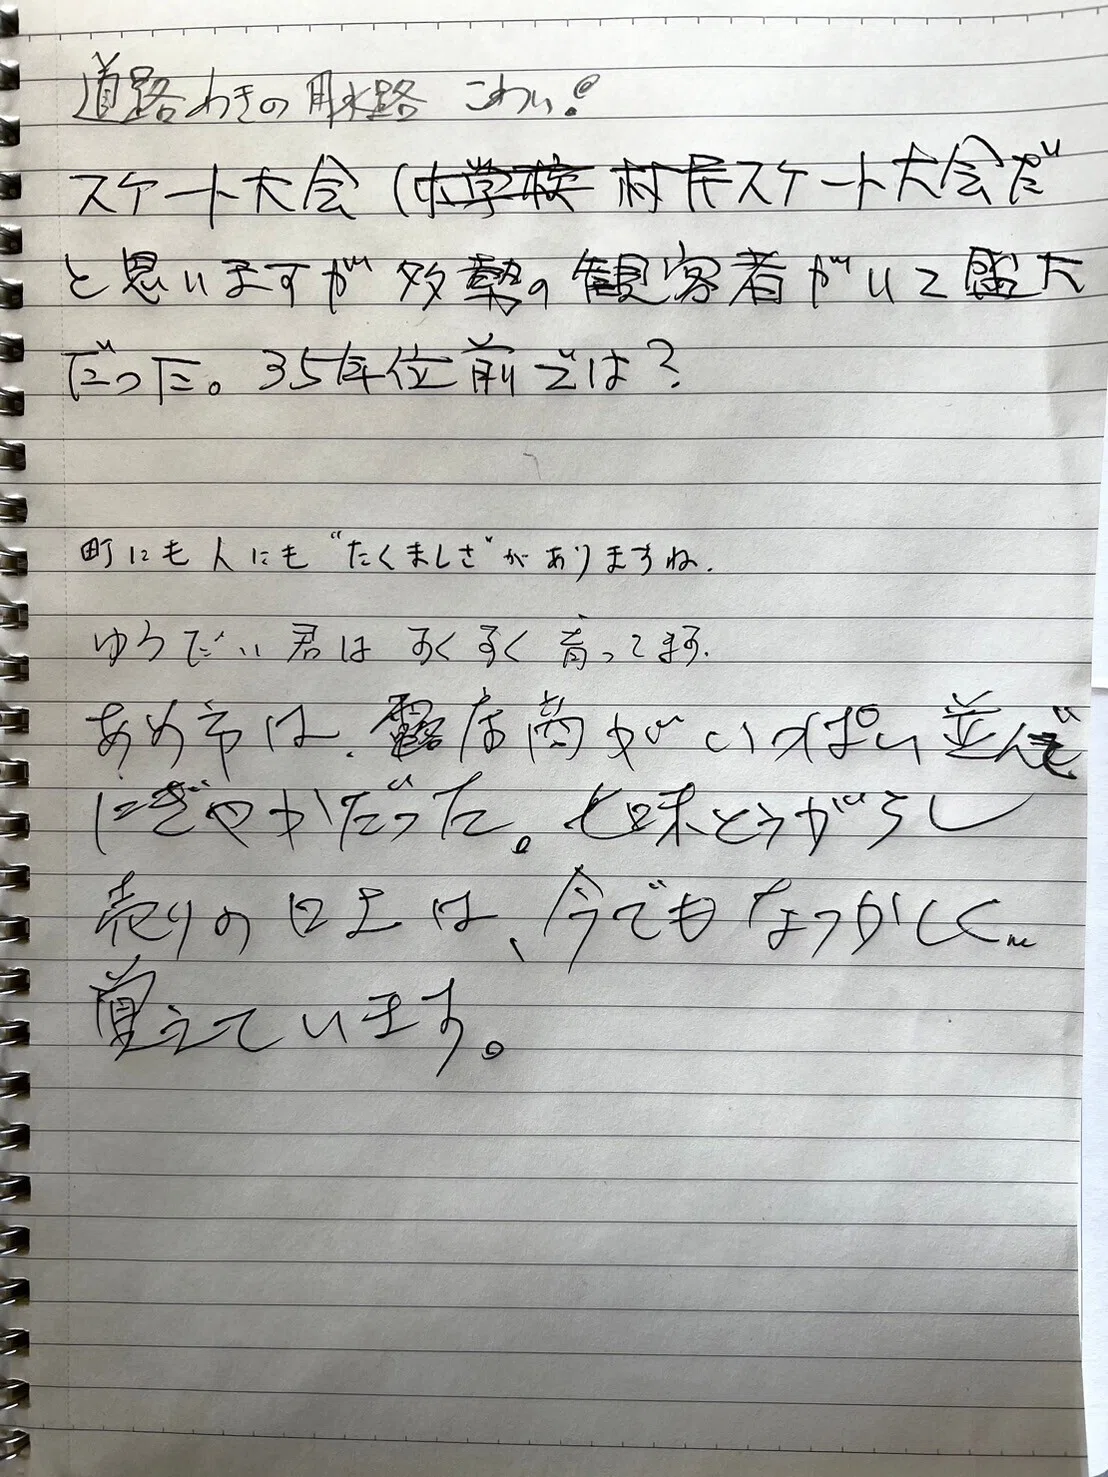 道路わきの用水路 こわい!
スケート大会(小学校 村民スケート大会だ
と思いますが多勢の観客者がいて盛大
だった。35年位前では?
町にも人にも“たくましさ”がありますね.
ゆうだい君はすくすく育ってます.
あめ市は、露店商がいっぱい並んで
にぎやかだった。七味とうがらし
売りの口上は、今でもなつかしく
覚えています。